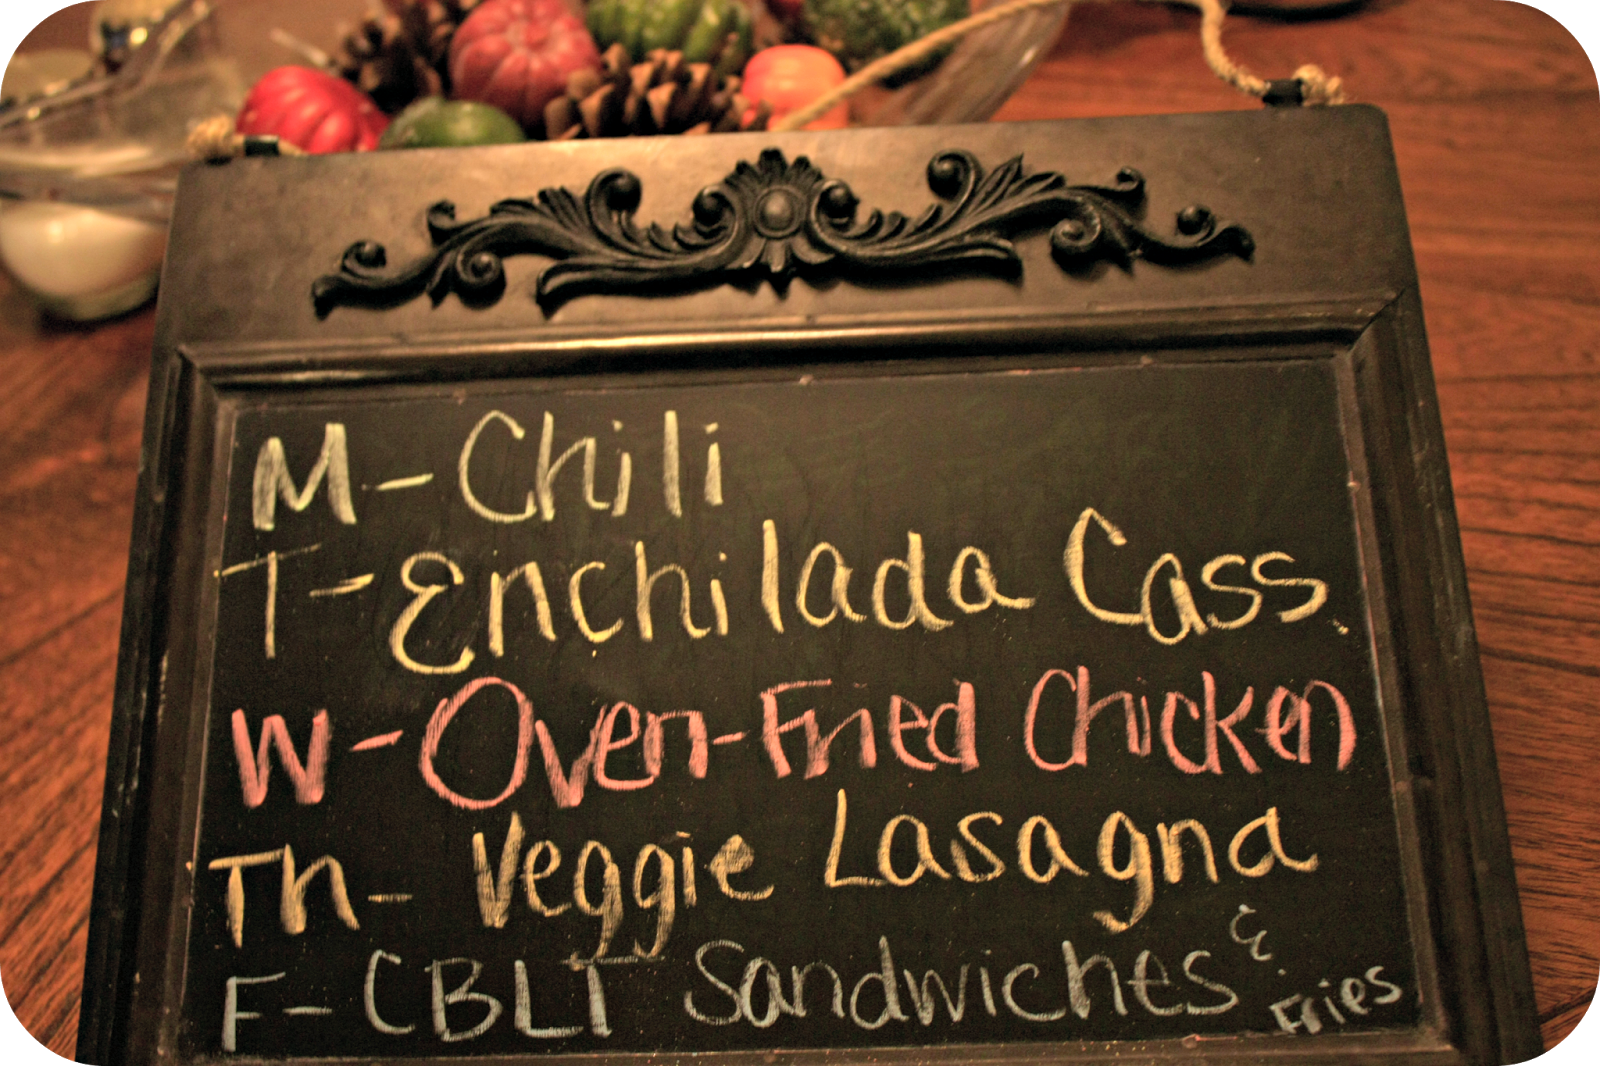 M-Chili
T-Enchilada Cass.
W-Oven-Fried Chicken
Th-Veggie Lasagna
F-CBLT Sandwiches &
Fries